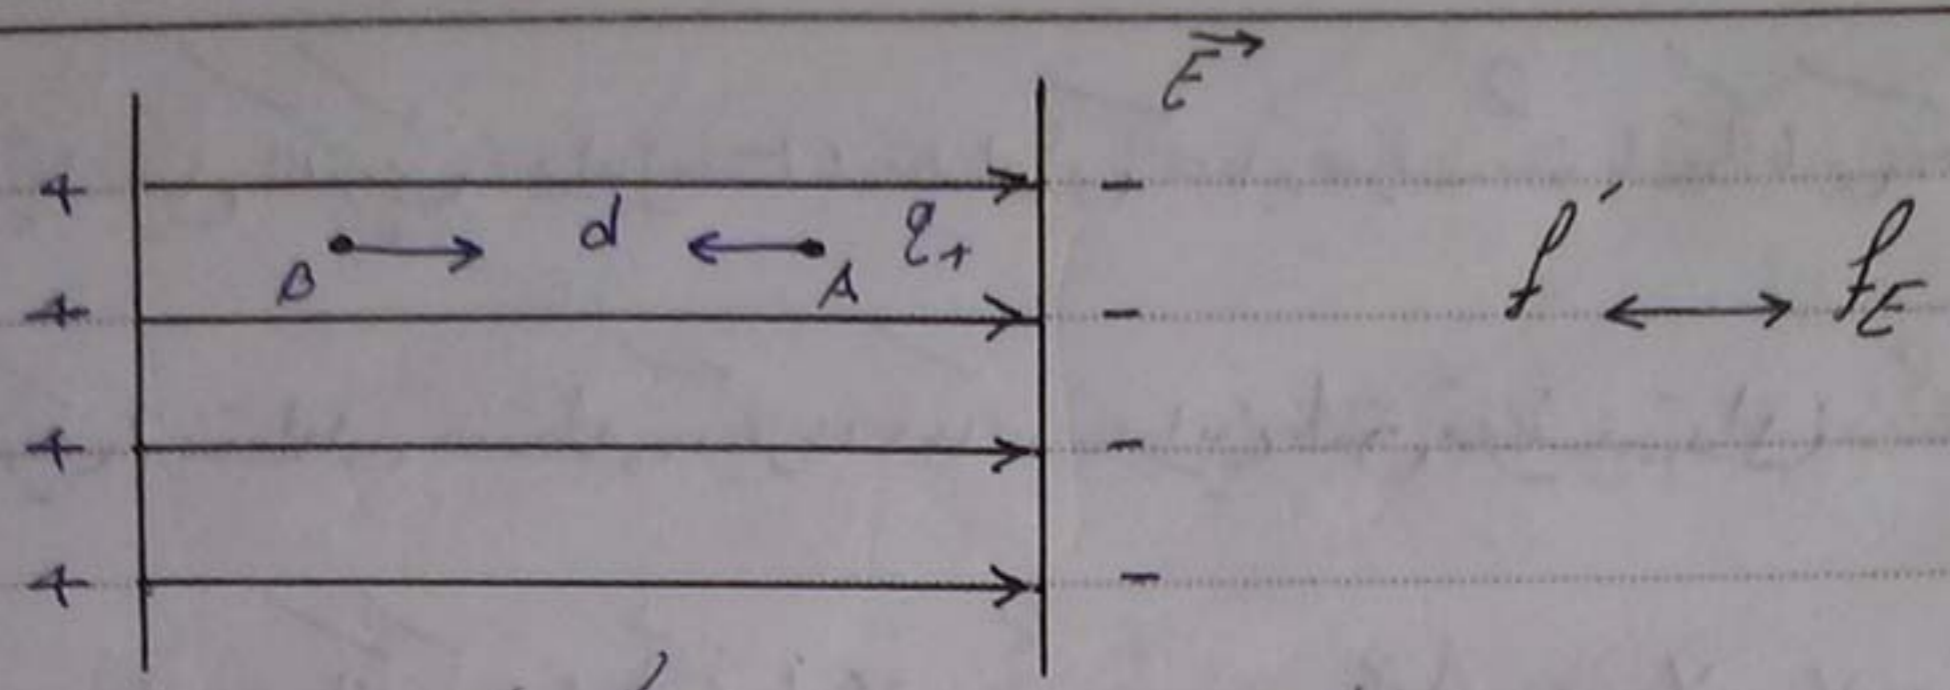 E
+ -
B d A q+
+ -
f' fE
+ -
+ -